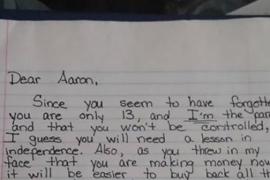 Dear Aaron,
Since you seem to have
you are only 13, and I'm the
and that you won't be controlled,
I guess you will need a lesson in
independence. Also, as you threw in my
face that you are making money now
it will be easier to buy back all